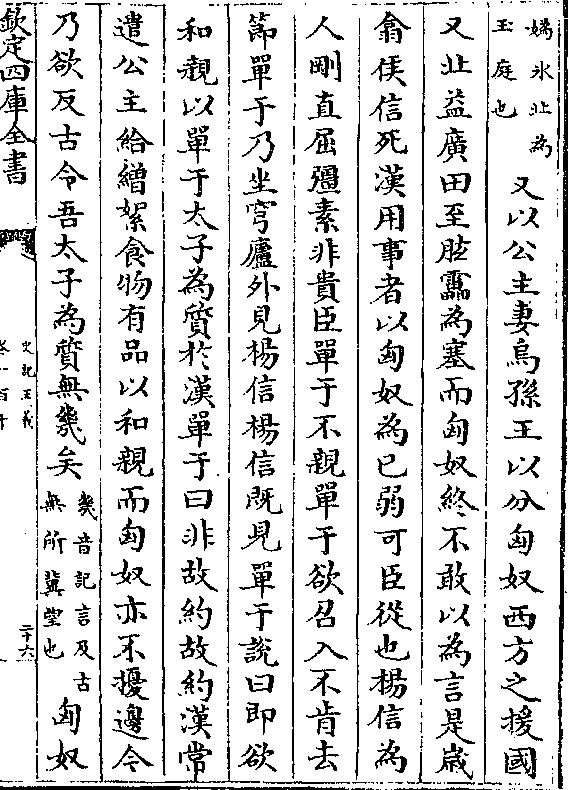 媯水北為
王庭也
又以公主妻烏孫王以分匈奴西方之援國
又北益廣田至胘靁為塞而匈奴終不敢以為言是歲
翕侯信死漢用事者以匈奴為已弱可臣從也楊信為
人剛直屈彊素非貴臣單于不親單于欲召入不肯去
節單于乃坐穹廬外見楊信楊信既見單于說曰即欲
和親以單于太子為質於漢單于曰非故約故約漢常
遣公主給繒絮食物有品以和親而匈奴亦不擾邊今
乃欲反古令吾太子為質無幾矣
幾音記言反古
無所冀望也
匈奴
欽定四庫全書
史記正義
卷一百十
二十六